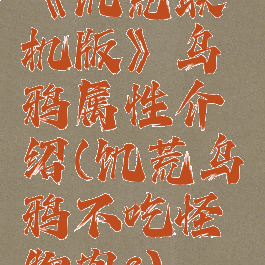 《饥荒
机版》乌
鸦属性介
绍(饥荒乌
鸦不吃怪